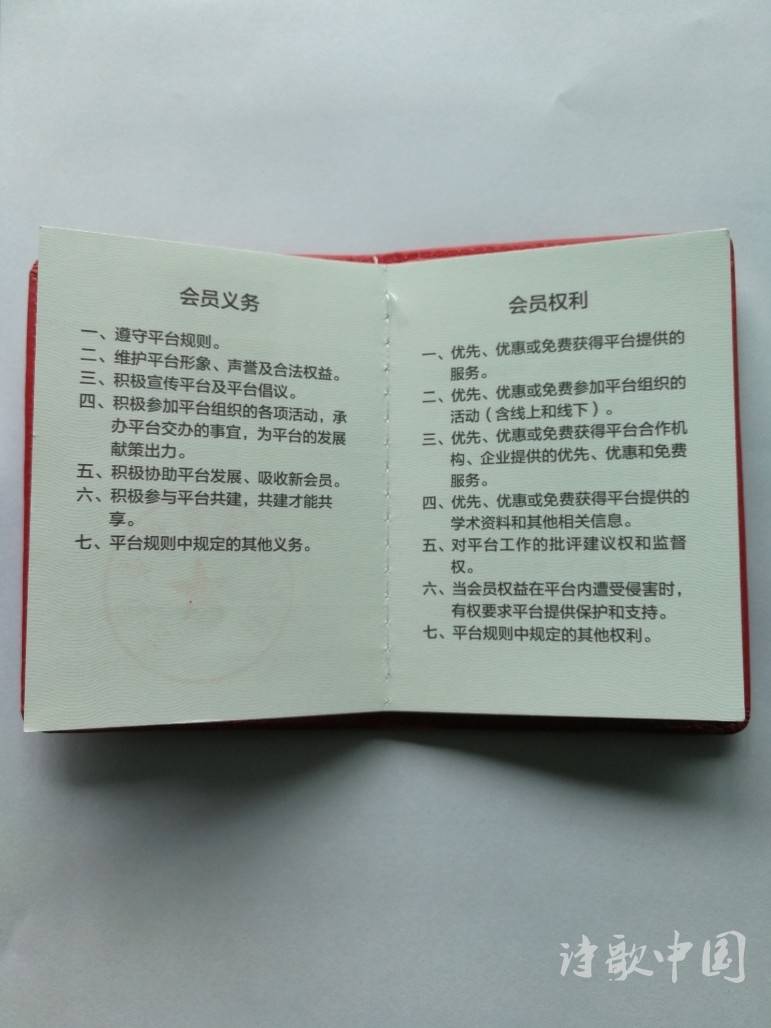 会员义务
一、遵守平台规则。
二、维护平台形象、声誉及合法权益。
三、积极宣传平台及平台倡议。
四、积极参加平台组织的各项活动，承
办平台交办的事宜，为平台的发展
献策出力。
五、积极协助平台发展、吸收新会员。
六、积极参与平台共建，共建才能共
享。
七、平台规则中规定的其他义务。
会员权利
一、优先、优惠或免费获得平台提供的
服务。
二、优先、优惠或免费参加平台组织的
活动（含线上和线下）。
三、优先、优惠或免费获得平台合作机
构、企业提供的优先、优惠和免费
服务。
四、优先、优惠或免费获得平台提供的
学术资料和其他相关信息。
五、对平台工作的批评建议权和监督
权。
六、当会员权益在平台内遭受侵害时，
有权要求平台提供保护和支持。
七、平台规则中规定的其他权利。
诗歌中国